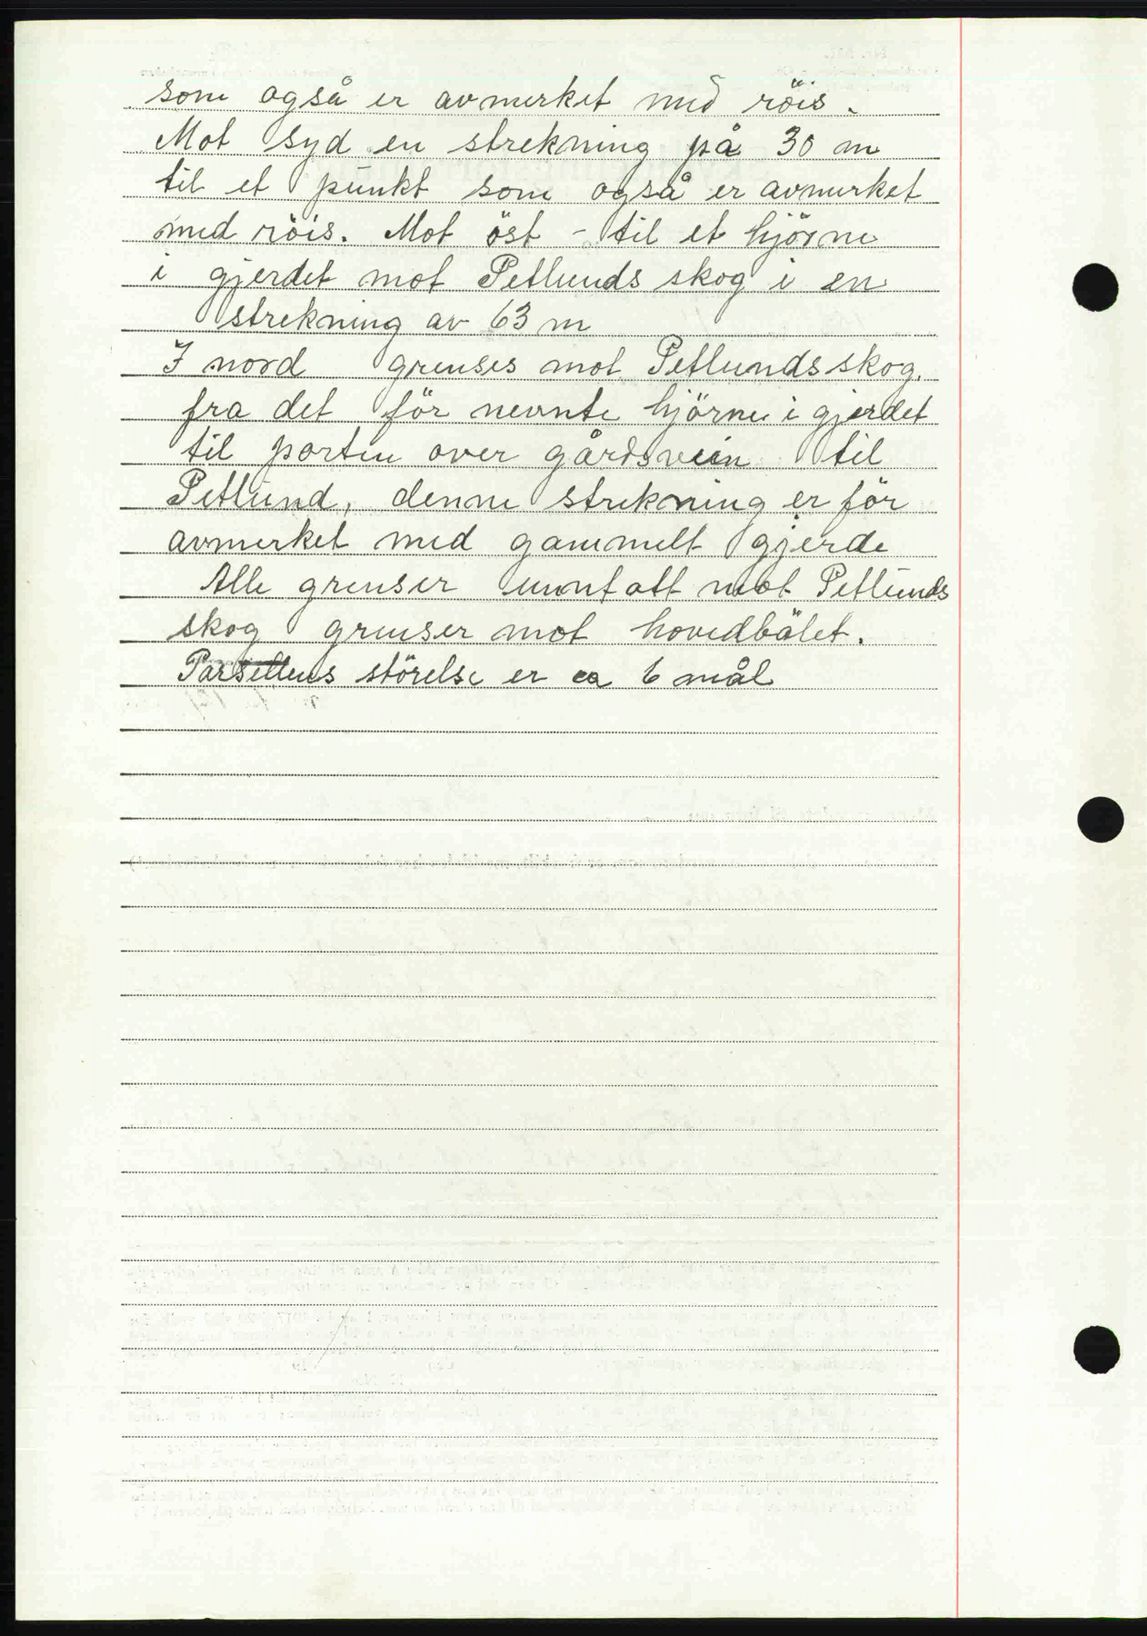 som også er avmerket med röis.
Mot Syd en strekning på 30 m
til et punkt som også er avmerket
med röis. Mot öst - til et hjörne
i gjerdet mot Petlunds skog i en
strekning av 63 m
I nord grenses mot Petlunds skog.
fra det för nevnte hjörne i gjerdet
til porten over gårdsveien til
Petlund, denne strekning er för
avmerket med gammelt gjerde
Alle grenser unntatt mot Petlunds
skog grenser mot hovedbölet.
Parsellens störelse er ca 6 mål